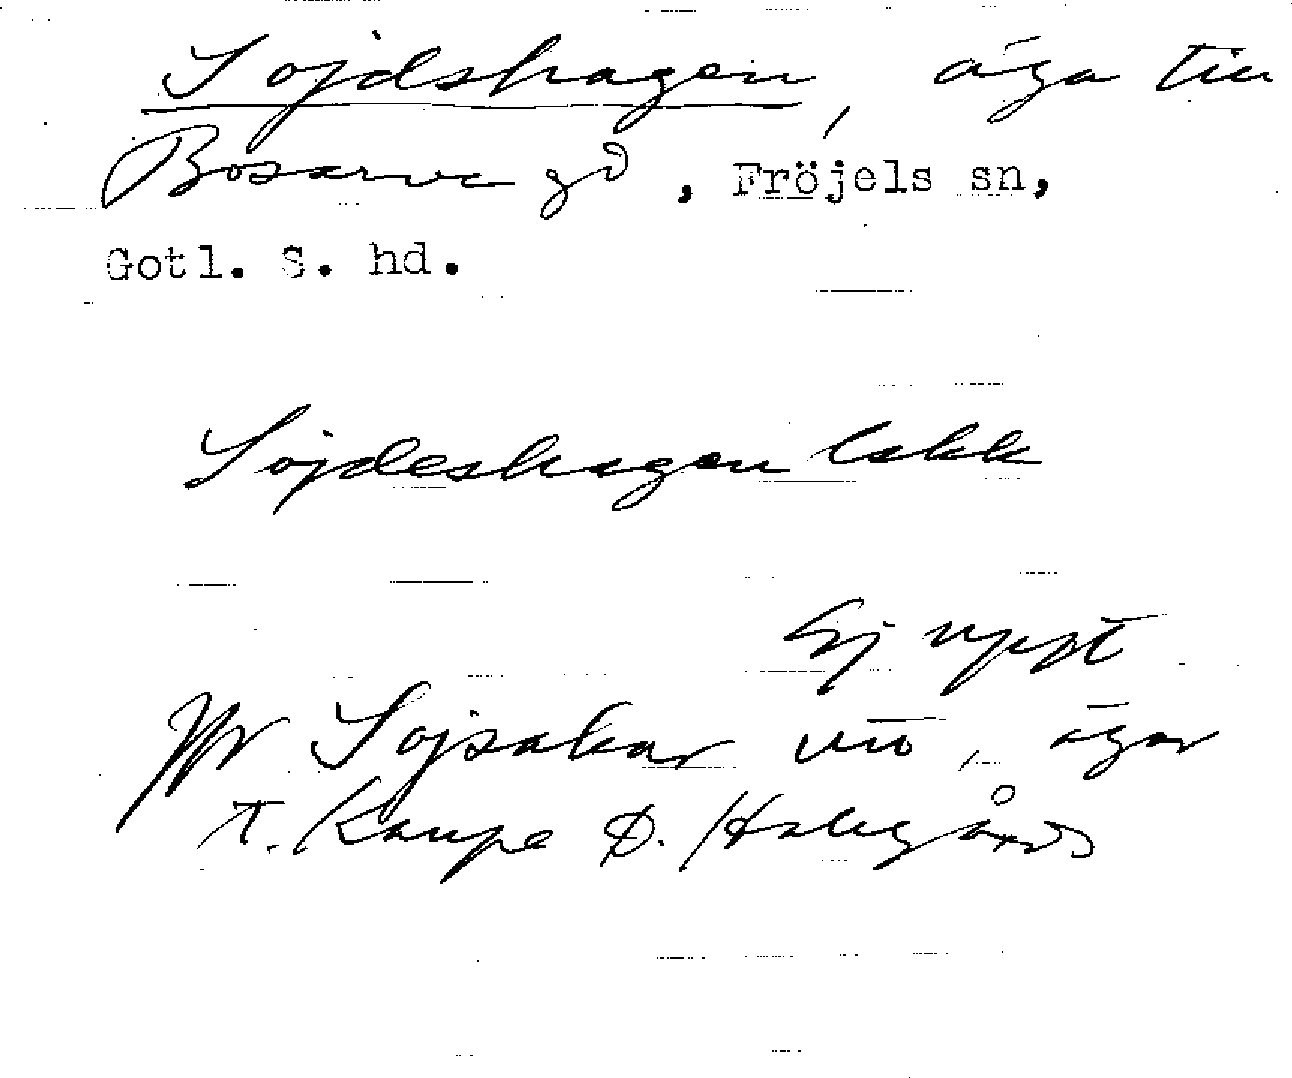 Sojdshagen, äga till
Bosarve gd, Fröjels sn,
Gotl. S. hd.
Sojdeshagen Lskk
Ej uppt
Jfr Sojsakar vid, ägor
T. Kaupe D. Hallgårds